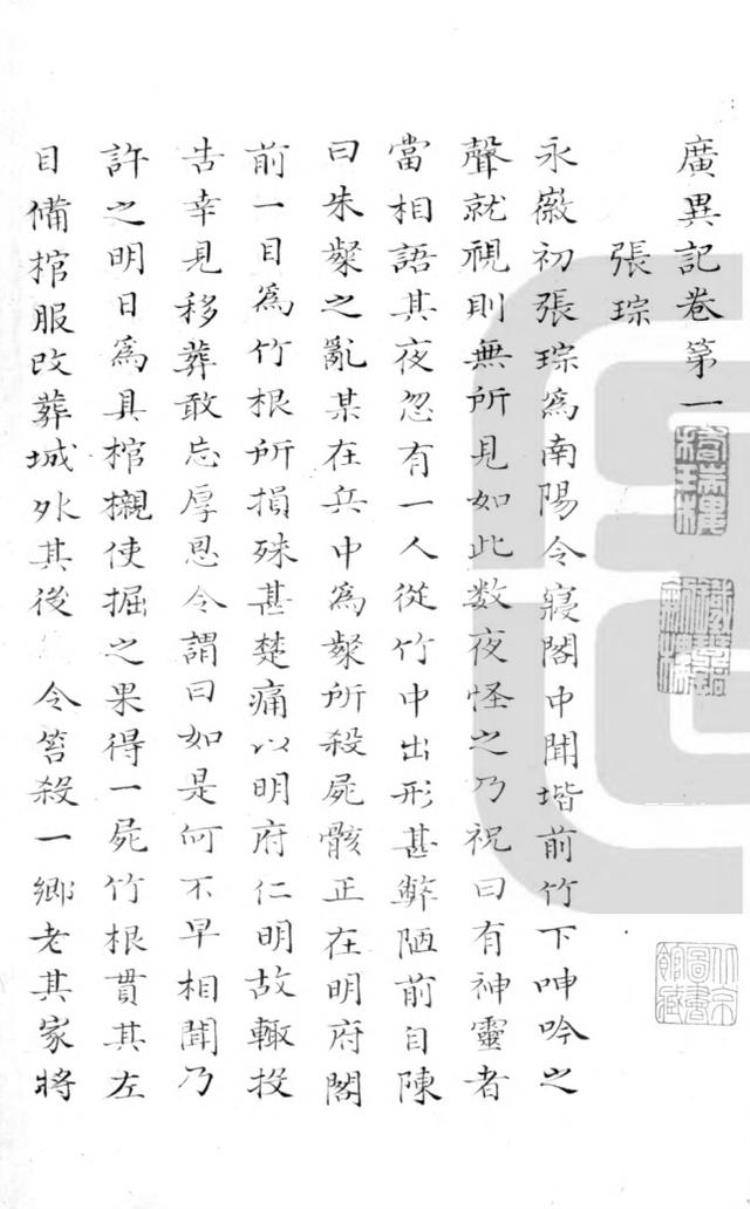 廣異記卷第一
張琮
永徽初張琮為南陽令寢閣中聞堦前竹下呻吟之
聲就視則無所見如此数夜怪之乃祝曰有神靈者
當相語其夜忽有一人從竹中出形甚弊陋前自陳
曰朱粲之亂某在兵中為粲所殺屍骸正在明府閣
前一目為竹根所損殊甚楚痛以明府仁明故輙投
告幸見移葬敢忘厚恩令謂曰如是何不早相聞乃
許之明日為具棺櫬使掘之果得一屍竹根貫其左
目備棺服改葬城外其後 令笞殺一鄉老其家將